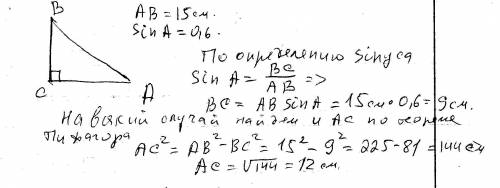 B
AB = 15 см.
sin A = 0,6.
C A
По определению sinуса
sin A = BC/AB =>
BC = AB sin A = 15 см • 0,6 = 9 см.
На всякий случай найдем и AC по теореме
Пифагора
AC² = AB² - BC² = 15² - 9² = 225 - 81 = 144 см
AC = √144 = 12 см.